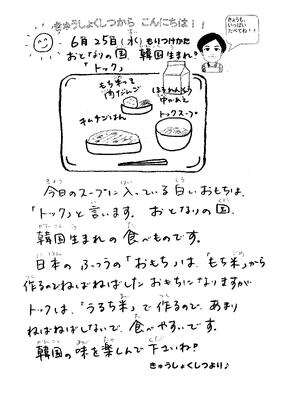 きゅうしょくしつから こんにちは！！
きょうも、
いっぱい
たべてね！！
6月25日(水)もりつけかた
おとなりの国、韓国生まれ！
「トック」
もち米つき
肉だんご
ほうれんそう
中かあえ
キムチごはん
トックスープ
今日のスープに入っている白いおもちは、
「トック」と言います。おとなりの国、
韓国生まれの食べものです。
日本のふつうの「おもち」は、「もち米」から
作るのでねばねばしたおもちになりますが
トックは、「うるち米」で作るので、あまり
ねばねばしないで、食べやすいです。
韓国の味を楽しんで下さいね？
きゅうしょくしつより♪